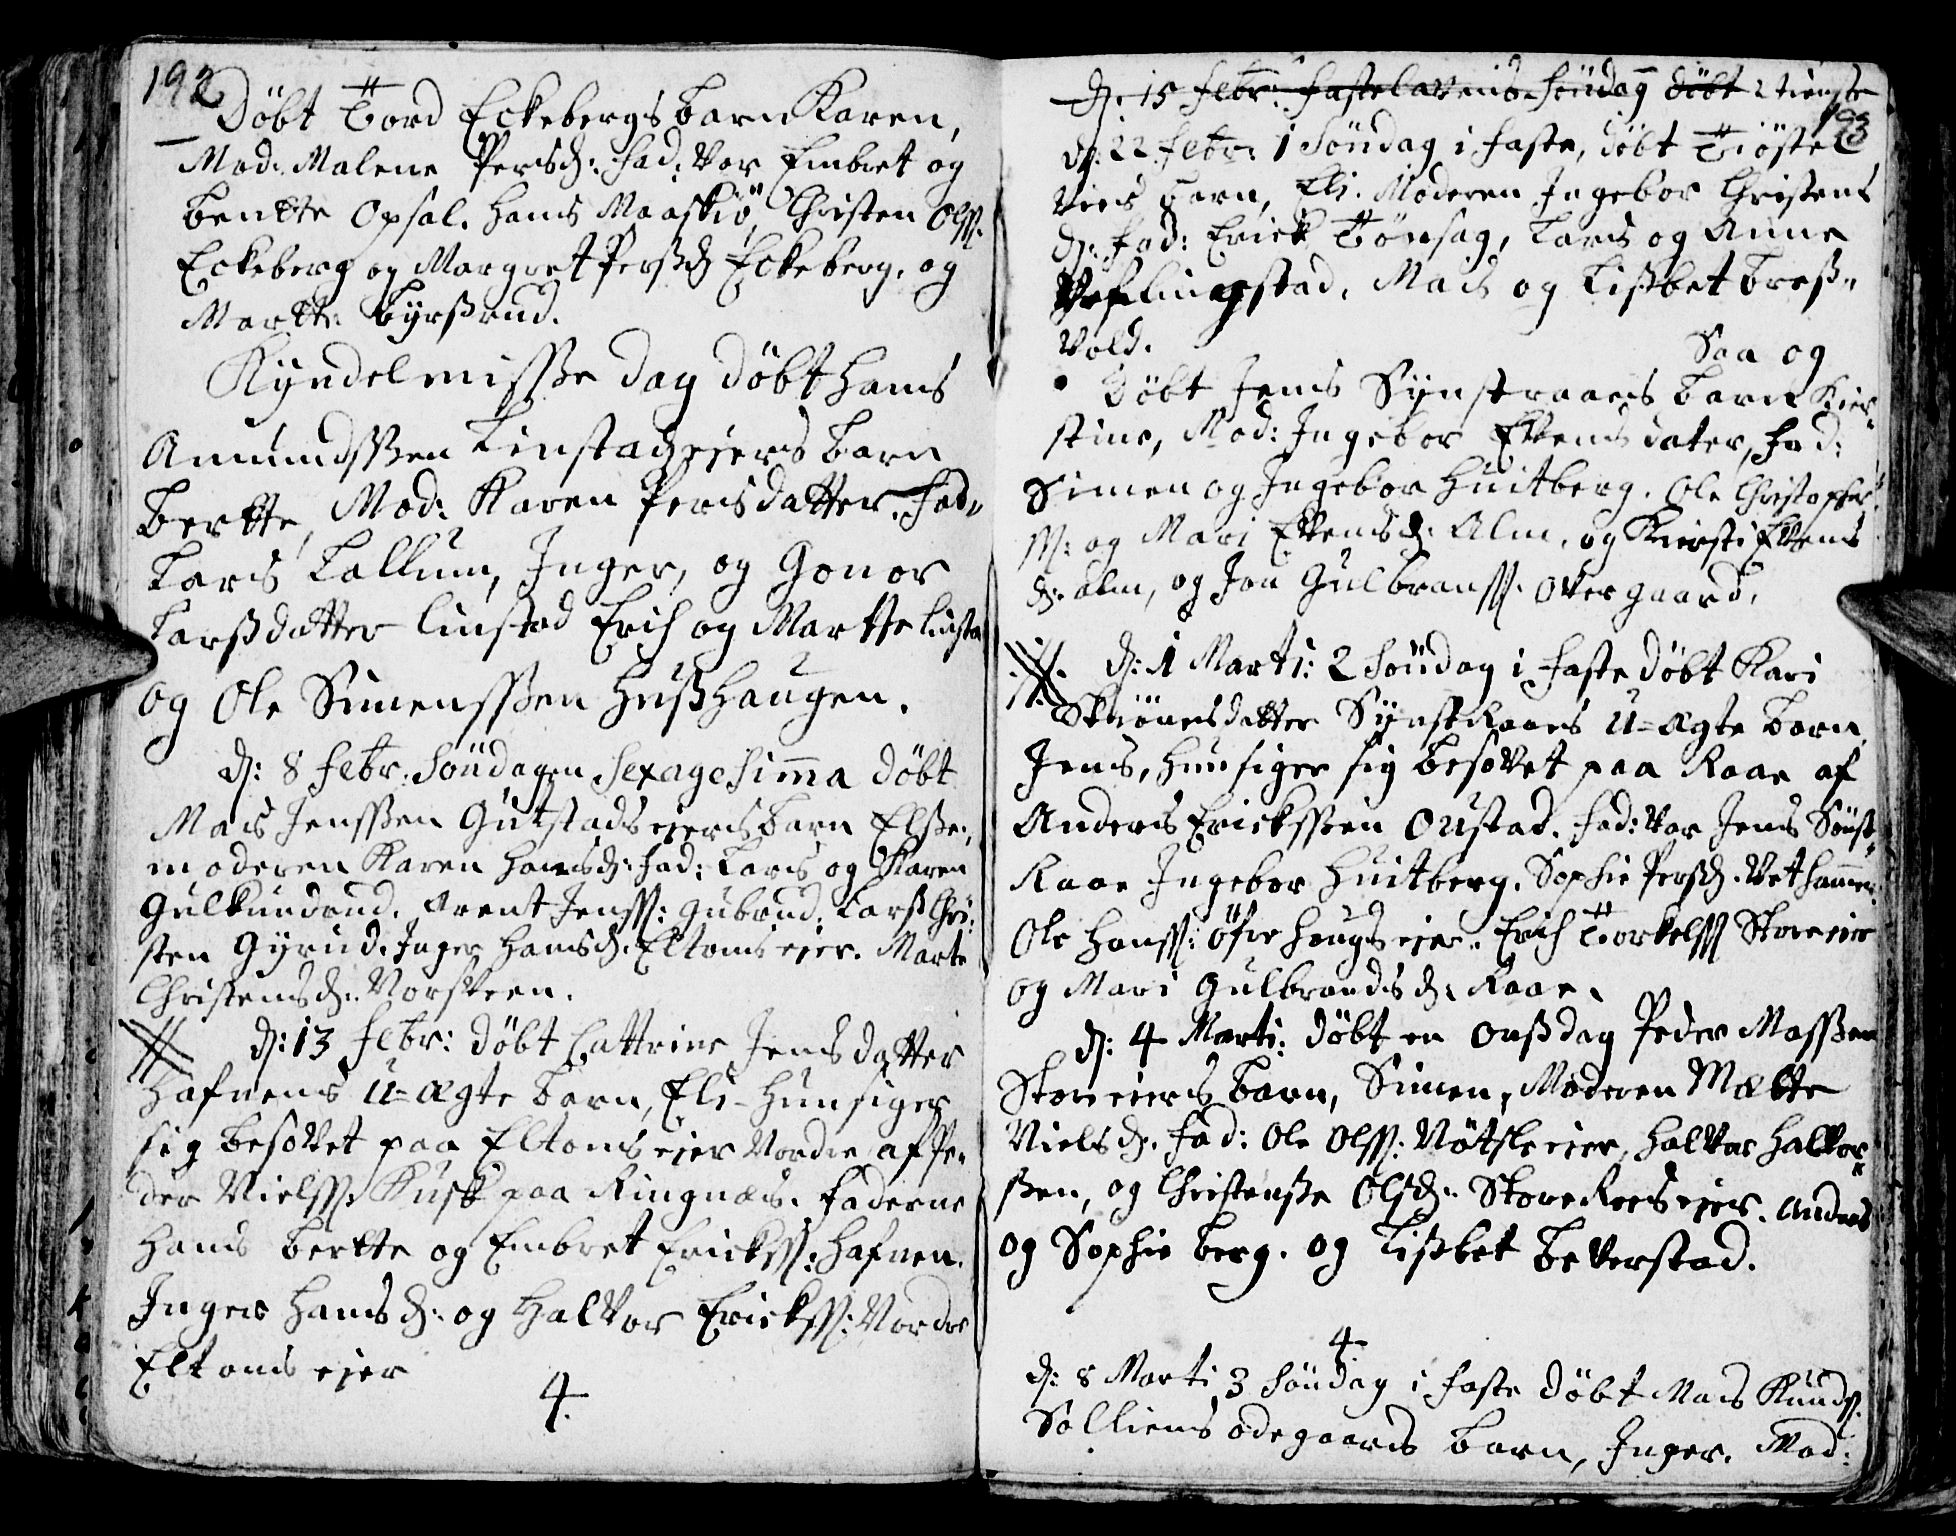 192
Döbt Tord Eckebergs barn Karen,
Mod: Malene Persd: fad: Vor Embret og
bentte Opsal. hans Maaskiö, Christen Olss.
Eckeberg og Margret Persd Eckeberg, og
Martte Byrßrud.
Kyndelmisse dag döbt hans
Amundssen Linstadeiers barn
bertte, Mod: Karen Persdatter. fad:
Lars Lallum, Inger, og Gonor
Larsdatter linstad Erich og Martte linsta
og Ole Simenssen Hußhaugen.
d: 8 febr. Söndagen Sexagesima döbt
Mads Jenssen Gutstads eiers barn Elsse,
moderen Karen hansd: fad: Lars og Karen
Gulkundrud. Arent Jenss: Gubrud. Lars Chri-
sten Gyrud. Inger hansd. Eltons eier. Marte
Christensd. Norsteen.
d: 13 febr: döbt Cattrine Jensdatter
hafnens u-ægte barn, Eli - hun siger
sig besovet paa Eltons eier Nordre af Pe-
der Nielss. Kusk paa Ringnæs. faderne
hans bertte og Embret Erickss: hafnen.
Inger hansd: og Halvor Erickss: Nordre
Eltons eier
4.
d. 15 febr: fastelavens Söndag döbt 2 tienste
193
d: 22 febr: 1 Söndag i faste, döbt Tiöstel
Vies barn, Eli. Moderen Ingebor Christens
d: fad: Erick Tönsag, Lars og Anne
stad, Mads og Lisbet breß-
Vold.
Saa og
Döbt Jens Synstraaens barn Kier-
stine, Mod: Ingebor Evensdater, fad:
Simen og Ingebor Huitberg. Ole Christopher
ss: og Mari Evensd: Alm, og Kiersti Evens
d: alm, og Jon Gulbranss. Overgaard.
d: 1 Marti: 2 Söndag i faste döbt Kari
Synstraaes u-ægte barn
Jens, hun siger sig besovet paa Raae af
Anders Erickssen Oustad. fad: Var Jens Synst-
Raae Ingebor Huitberg. Sophie Persd. Vethammer
Ole Hanss: Öfre Haugs eier. Erich Torkelss Store eie
og Mari Gulbrandsd: Raae.
d: 4 Marti: döbt en Onsdag Peder Massen
Store eiers barn, Simen, Moderen Mætte
Nielsd. fad: Ole Olss: Nötsle eier, Halvor Halvor-
sen, og Christense Olsd: Store Rees eier. Anders
og Sophie berg. og Lisbet beverstad.
4.
d: 8 Marti 3 Söndag i faste döbt Mads Knudss.
Solliens ödegaards barn, Inger. Mod: